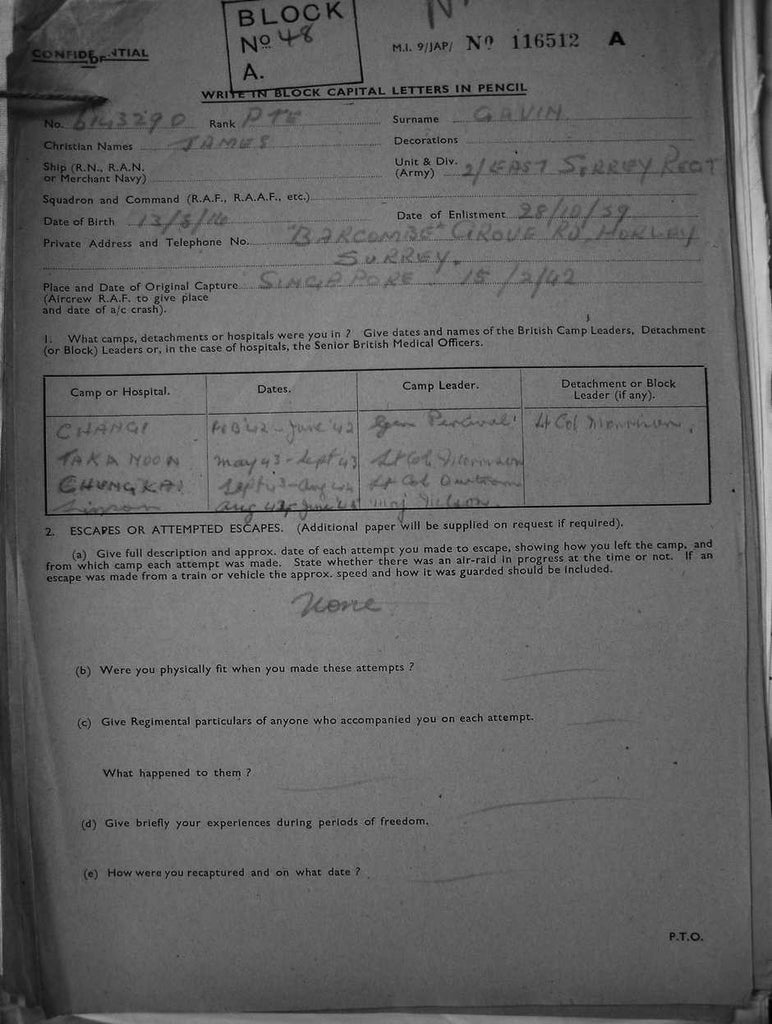 BLOCK
Nº 48
A.
CONFIDENTIAL
M.I. 9/JAP/ Nº 116512 A
WRITE IN BLOCK CAPITAL LETTERS IN PENCIL
No. 6143290 Rank PTE Surname GAVIN
Christian Names JAMES Decorations
Ship (R.N., R.A.N. or Merchant Navy) Unit & Div. (Army) 2/EAST SURREY REGT
Squadron and Command (R.A.F., R.A.A.F., etc.)
Date of Birth 13/5/16 Date of Enlistment 28/10/39
Private Address and Telephone No. "BARCOMBE" GROVE RD, HORLEY
SURREY.
Place and Date of Original Capture SINGAPORE 15/2/42
(Aircrew R.A.F. to give place
and date of a/c crash).
1. What camps, detachments or hospitals were you in ? Give dates and names of the British Camp Leaders, Detachment
(or Block) Leaders or, in the case of hospitals, the Senior British Medical Officers.
Camp or Hospital. Dates. Camp Leader. Detachment or Block Leader (if any).
CHANGI FEB '42 - June '42 Gen Percival Lt Col
TAKANOON May 43 - Sept 43 Lt Col
CHUNGKAI Sept 43 - Aug 44 Lt Col Outram
Aug 44 - June 45 Maj
2. ESCAPES OR ATTEMPTED ESCAPES. (Additional paper will be supplied on request if required).
(a) Give full description and approx. date of each attempt you made to escape, showing how you left the camp, and
from which camp each attempt was made. State whether there was an air-raid in progress at the time or not. If an
escape was made from a train or vehicle the approx. speed and how it was guarded should be included.
None
(b) Were you physically fit when you made these attempts ?
(c) Give Regimental particulars of anyone who accompanied you on each attempt.
What happened to them ?
(d) Give briefly your experiences during periods of freedom.
(e) How were you recaptured and on what date ?
P.T.O.